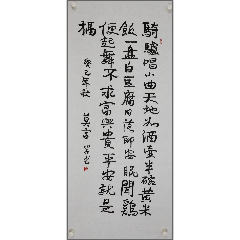 騎驢唱小曲天地为酒壺半碗黄米
飯一盘白豆腐日落即安眠聞鷄
便起舞不求富與貴平安就是
福
癸巳年秋 莫言